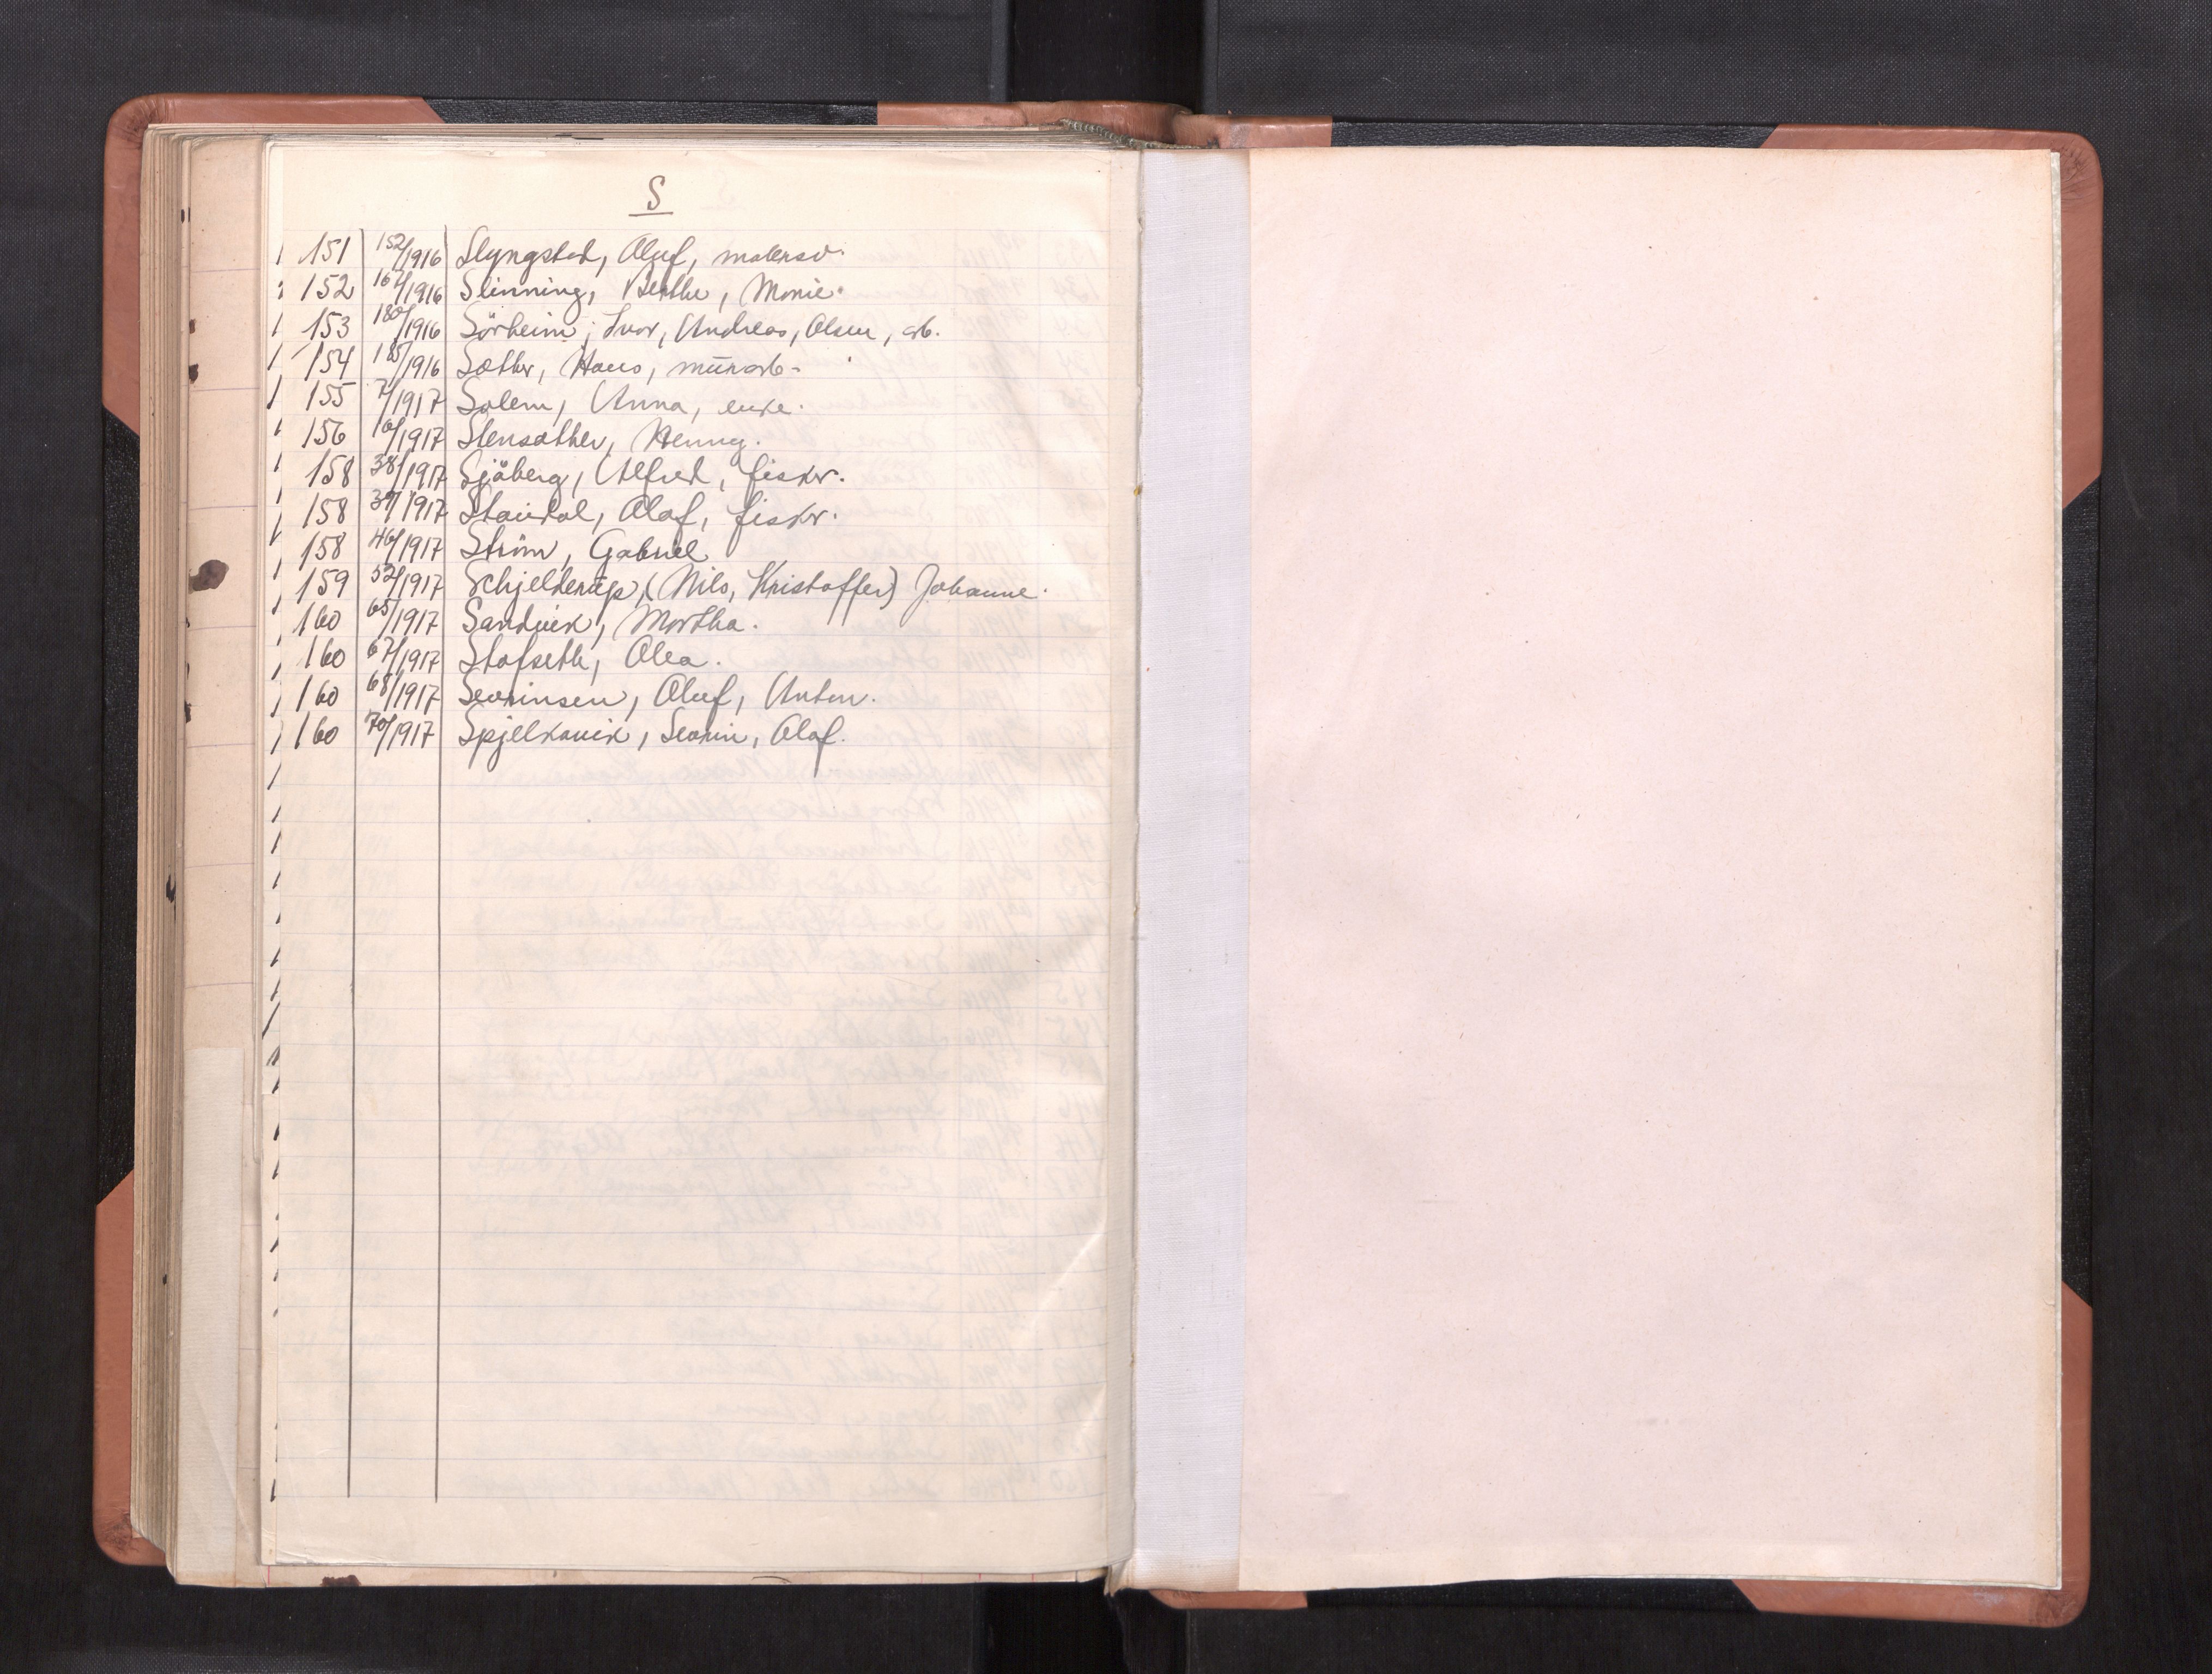 S
151 152/1916 Slyngstad, Oluf, malersv.
152 167/1916 Slinning, Berthe, Marie.
153 180/1916 Sörheim, Ivar, Andreas, Olsen, arb.
154 185/1916 Sæther, Hans, mūrarb.
155 7/1917 Solem, Anna, enke.
156 16/1917 Stensæther, Henny.
158 38/1917 Sjöberg, Alfred, fisker.
158 39/1917 Standal, Olaf, fisker.
158 46/1917 Ström, Gabriel
159 52/1917 Schjelderūp, (Nils, Kristoffer) Johanne.
160 65/1917 Sandvik, Martha.
160 67/1917 Stafseth, Olea.
160 68/1917 Sevrinsen, Oluf, Anton.
160 70/1917 Spjelkavik, Sevrin, Olaf.